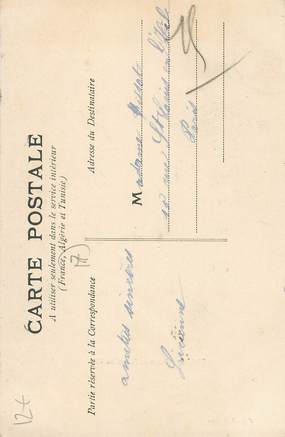 CARTE POSTALE
A utiliser seulement dans le service intérieur
(France, Algérie et Tunisie)
17
Partie réservée à la Correspondance
Adresse du Destinataire
amitiés sincères
Lucienne
Madame
rue St Louis en l'Ile
Paris
12+